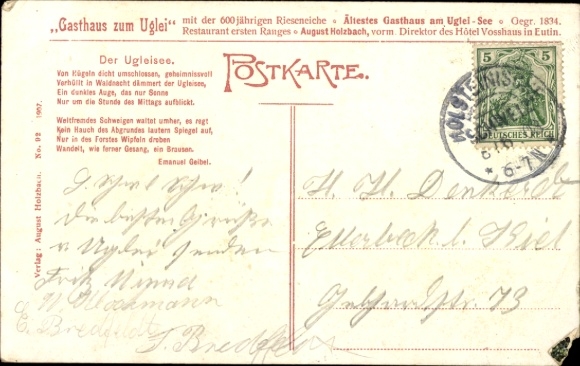 „Gasthaus zum Uglei“ mit der 600jährigen Rieseneiche · Ältestes Gasthaus am Uglei-See · Gegr. 1834.
Restaurant ersten Ranges · August Holzbach, vorm. Direktor des Hôtel Vosshaus in Eutin.
Der Ugleisee.
Von Hügeln dicht umschlossen, geheimnissvoll
Verhüllt in Waldnacht dämmert der Uglei,
Ein dunkles Auge, das nur Sonne
Nur um die Stunde des Mittags aufblickt.
Weltfremdes Schweigen waltet umher, es regt
Kein Hauch des Abgrundes lautern Spiegel auf,
Nur in des Forstes Wipfeln droben
Wandelt, wie ferner Gesang, ein Brausen.
Emanuel Geibel.
POSTKARTE.
5 5
DEUTSCHES REICH
HOLSTEINISCHE
6-7N
Verlag: August Holzbach. No. 92 1907.
die besten Grüße
v Uglei senden
Fritz
E. Bredfeldt
H. H. Denkerdt
Ellerbeck b. Kiel
73